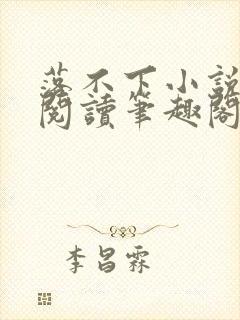 落不下小説
閱讀筆趣閣
李昌霖